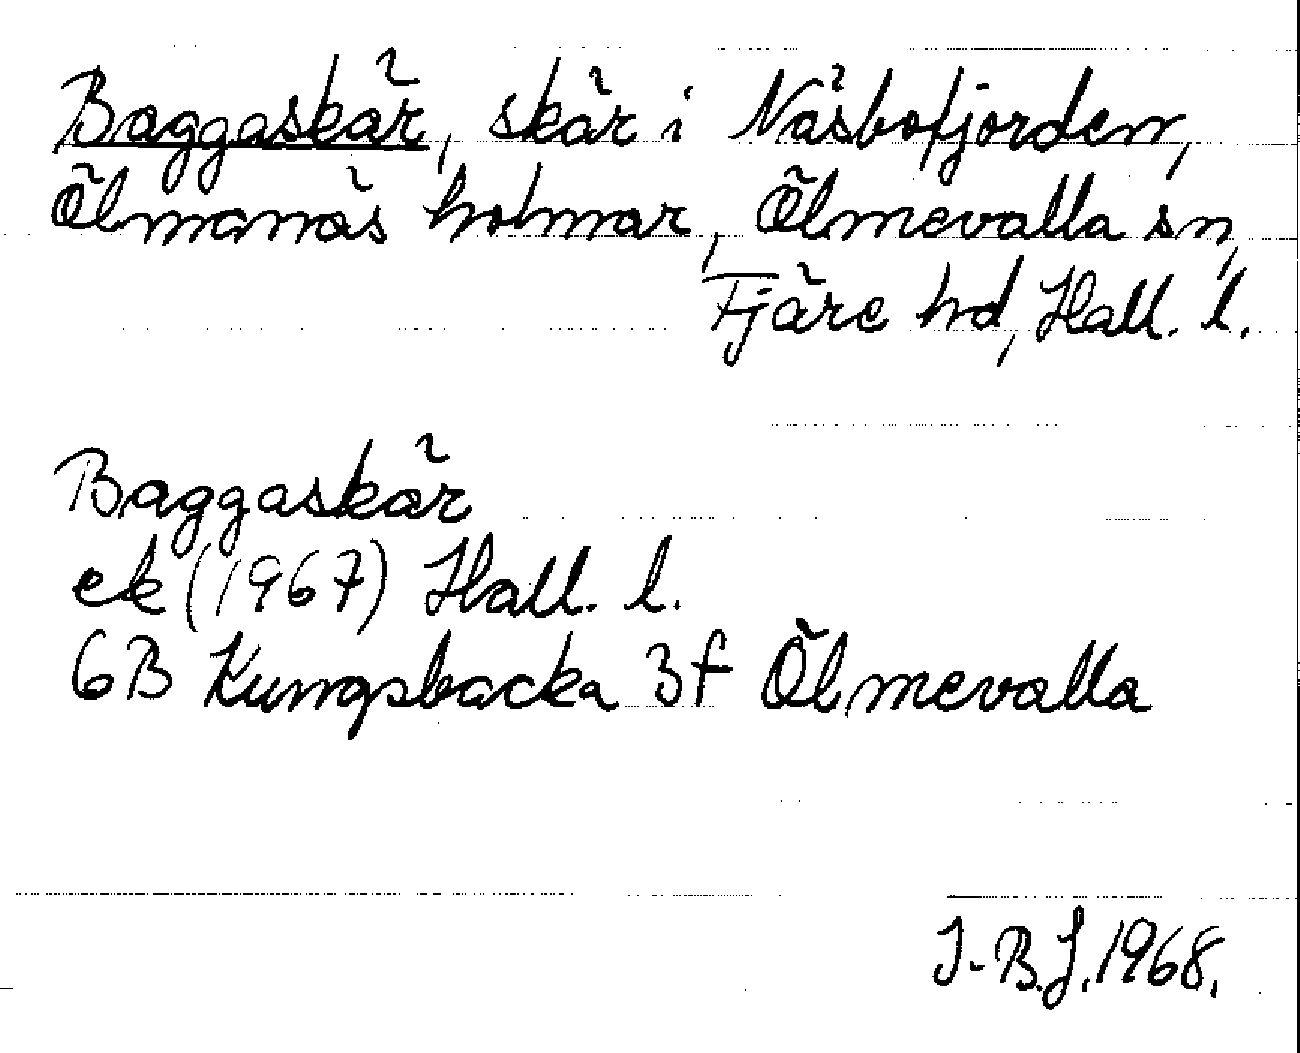 Baggaskär, skär i Näsbofjorden,
Ölmanäs holmar, Ölmevalla sn,
Fjäre hd, Hall. l.
Baggaskär
ek (1967) Hall. l.
6B Kungsbacka 3f Ölmevalla
I-B.J. 1968.